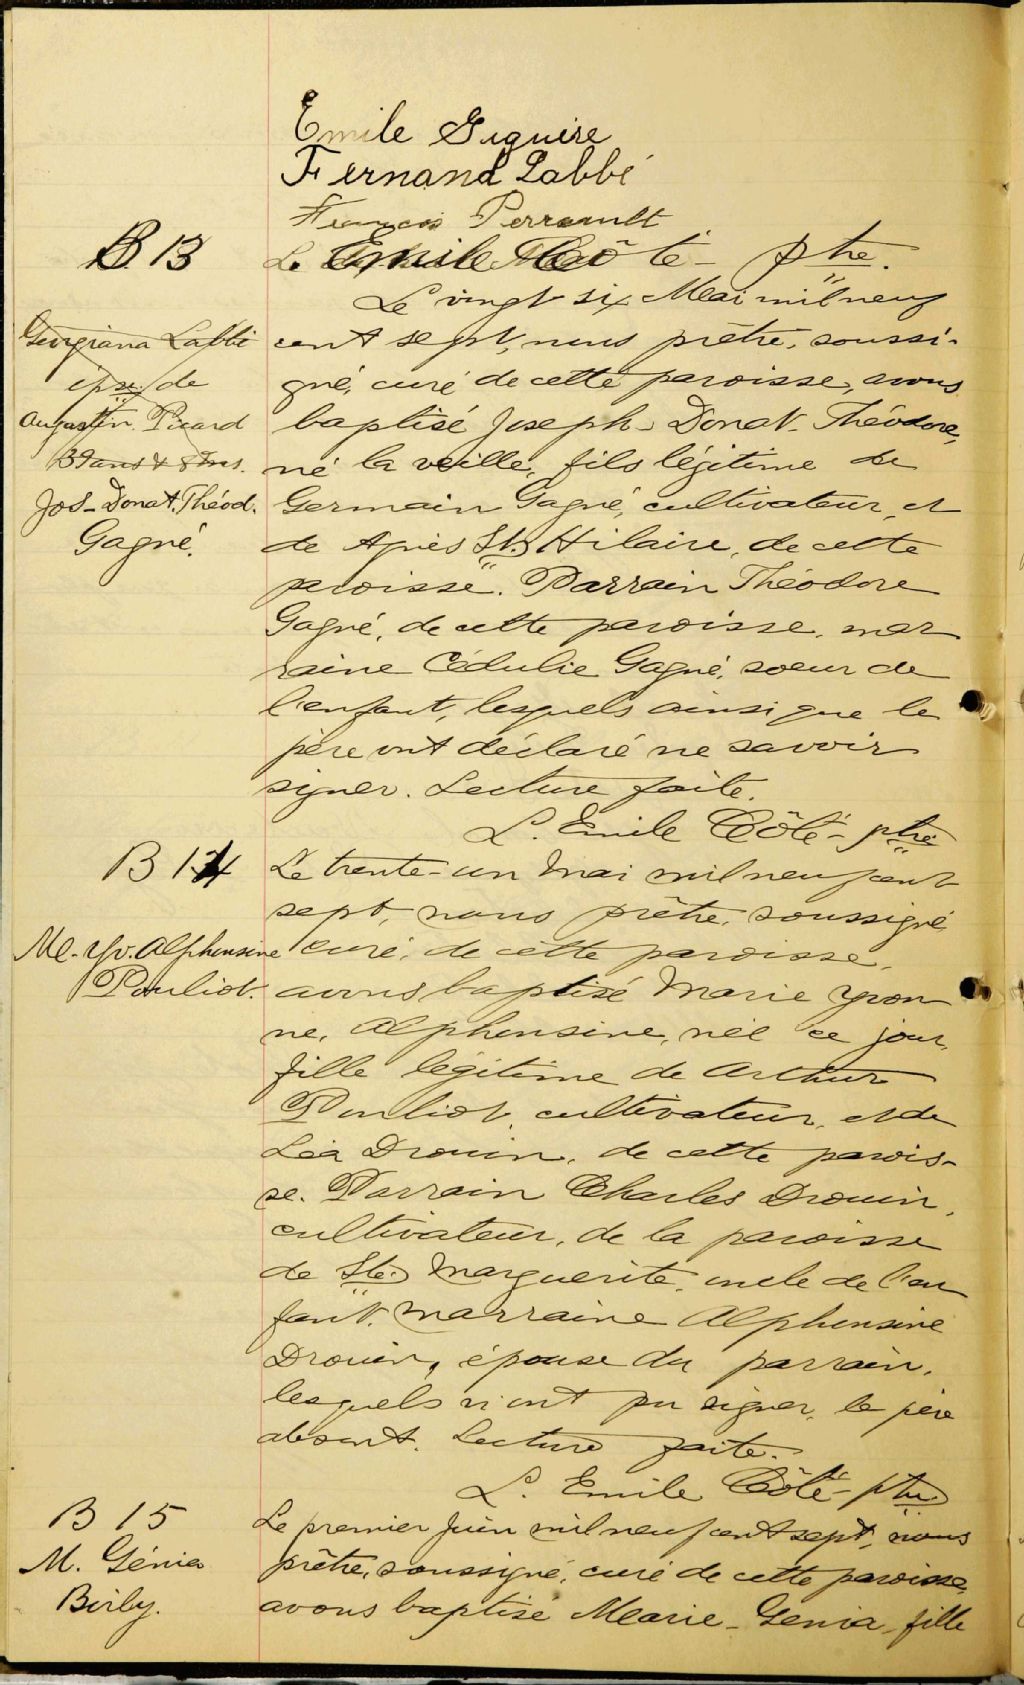 Emile Giguère
Fernand Labbé
François Perrault
B 13
L. Emile Côté - ptre.
Le vingt six Mai mil neuf
Georgiana Labbé
cent sept, nous prêtre, soussi-
épse. de
gné, curé de cette paroisse, avons
Augustin Picard
baptisé Joseph-Donat-Théodore,
39 ans & 8 ms.
né la veille, fils légitime de
Jos-Donat. Théod.
Germain Gagné, cultivateur, et
Gagné.
de Agnès St. Hilaire, de cette
paroisse. Parrain Théodore
Gagné, de cette paroisse, mar
raine Cédulie Gagné, soeur de
l'enfant, lesquels ainsi que le
père ont déclaré ne savoir
signer. Lecture faite.
L. Emile Côté - ptre
B 14
Le trente-un Mai mil neuf cent
sept, nous prêtre, soussigné,
Me. Yv. Alphonsine
curé, de cette paroisse,
Pouliot.
avons baptisé Marie Yvon
ne, Alphonsine, née ce jour,
fille légitime de Arthur
Pouliot, cultivateur, et de
Léa Drouin, de cette parois-
se. Parrain Charles Drouin,
cultivateur, de la paroisse
de Ste. Marguerite, oncle de l'en
fant. marraine Alphonsine
Drouin, épouse du parrain,
lesquels n'ont pu signer, le père
absent. Lecture faite.
L. Emile Côté - ptre
B 15
Le premier Juin mil neuf cent sept, nous
M. Génia
prêtre, soussigné, curé de cette paroisse,
Birly.
avons baptisé Marie-Genia, fille